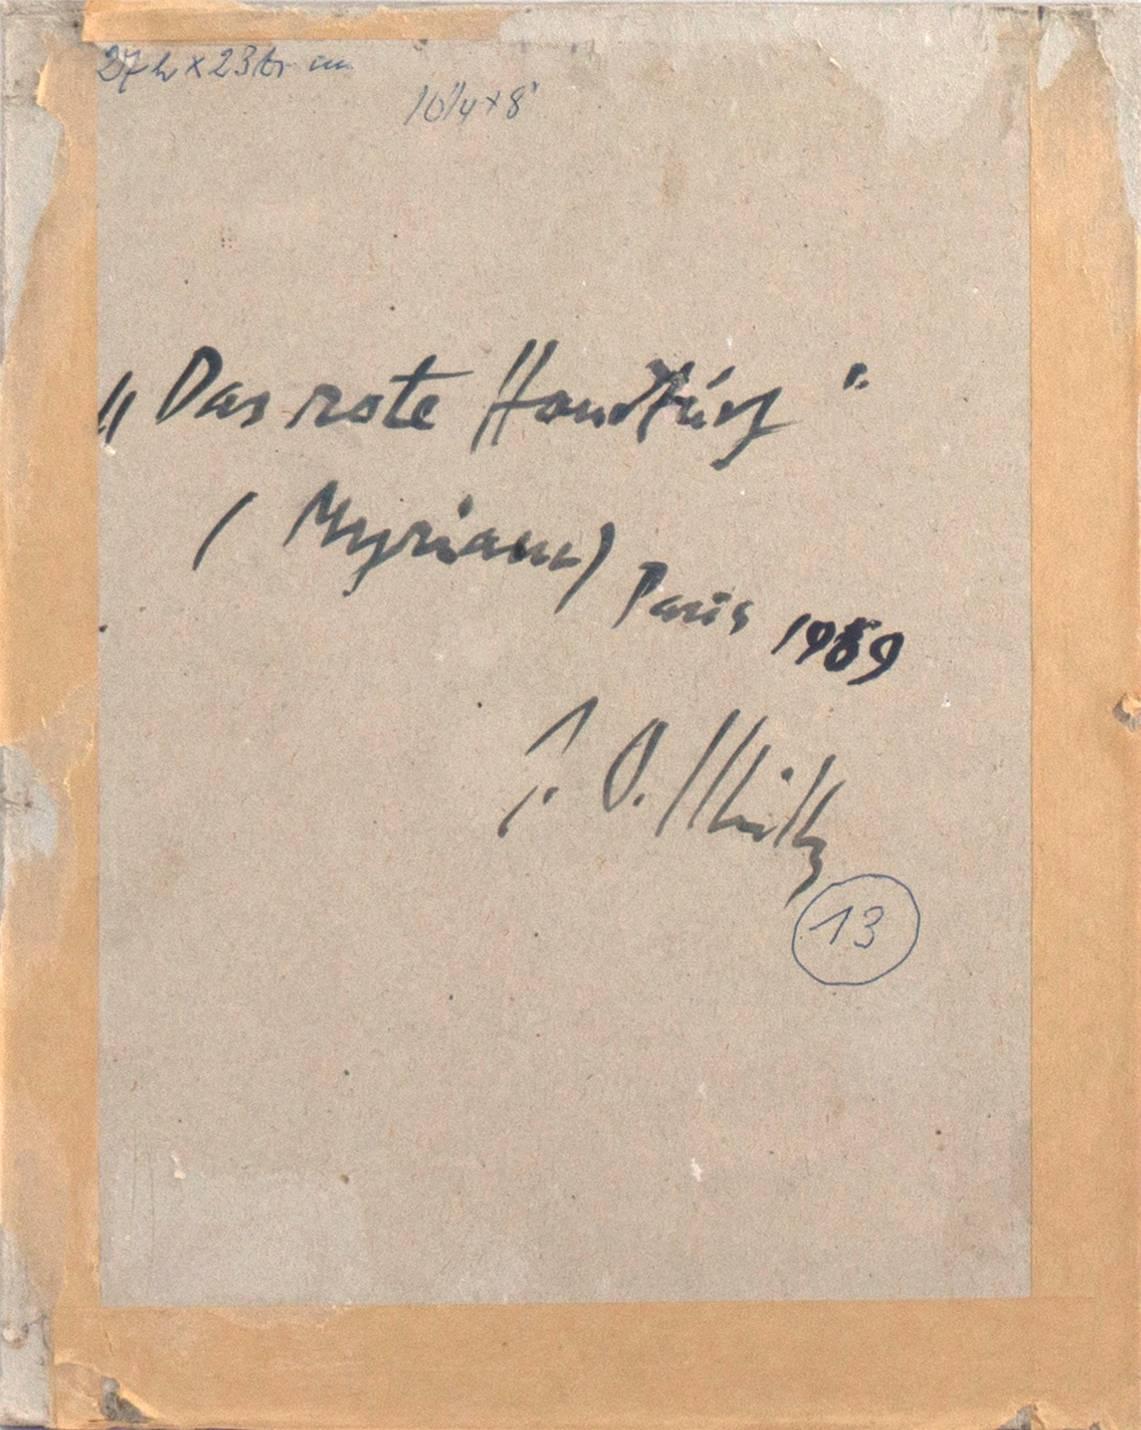 27 h x 23 br cm
10 1/4 x 8"
„Das rote Handtuch"
(Myriam) Paris 1969
O.
13